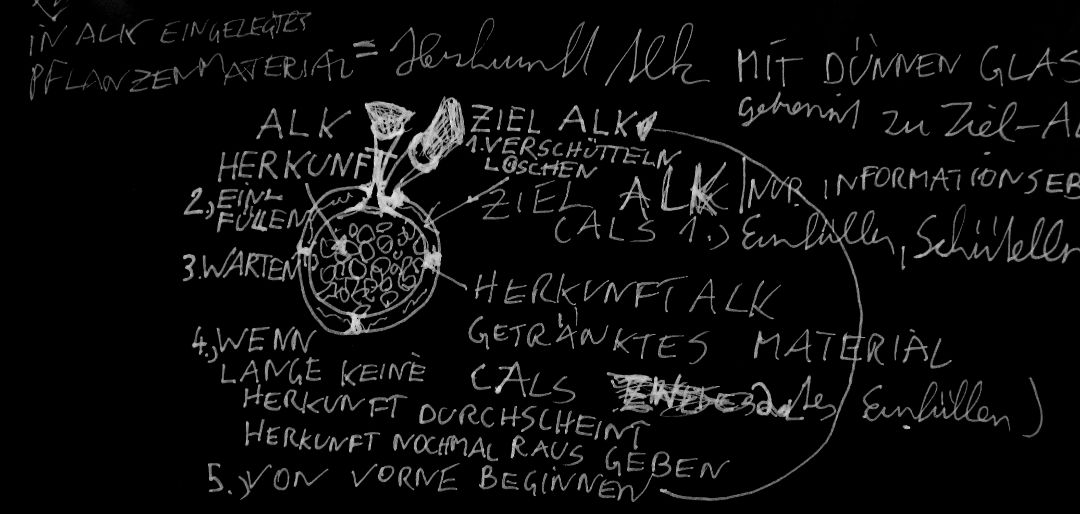 IN ALK EINGELEGTES
PFLANZENMATERIAL = Herkunft Alk MIT DÜNNEN GLAS
getrennt zu Ziel-Al
ALK
HERKUNFT
ZIEL ALK
1. VERSCHÜTTELN
LÖSCHEN
2.) EIN-
FÜLLEN
ZIEL ALK NUR INFORMATIONSEB
(ALS 1.) Einfüllen, Schütteln
3. WARTEN
HERKUNFT ALK
GETRÄNKTES MATERIAL
(ALS 2tes Einfüllen)
4.) WENN
LANGE KEINE
HERKUNFT DURCHSCHEINT
HERKUNFT NOCHMAL RAUS GEBEN
5.) VON VORNE BEGINNEN